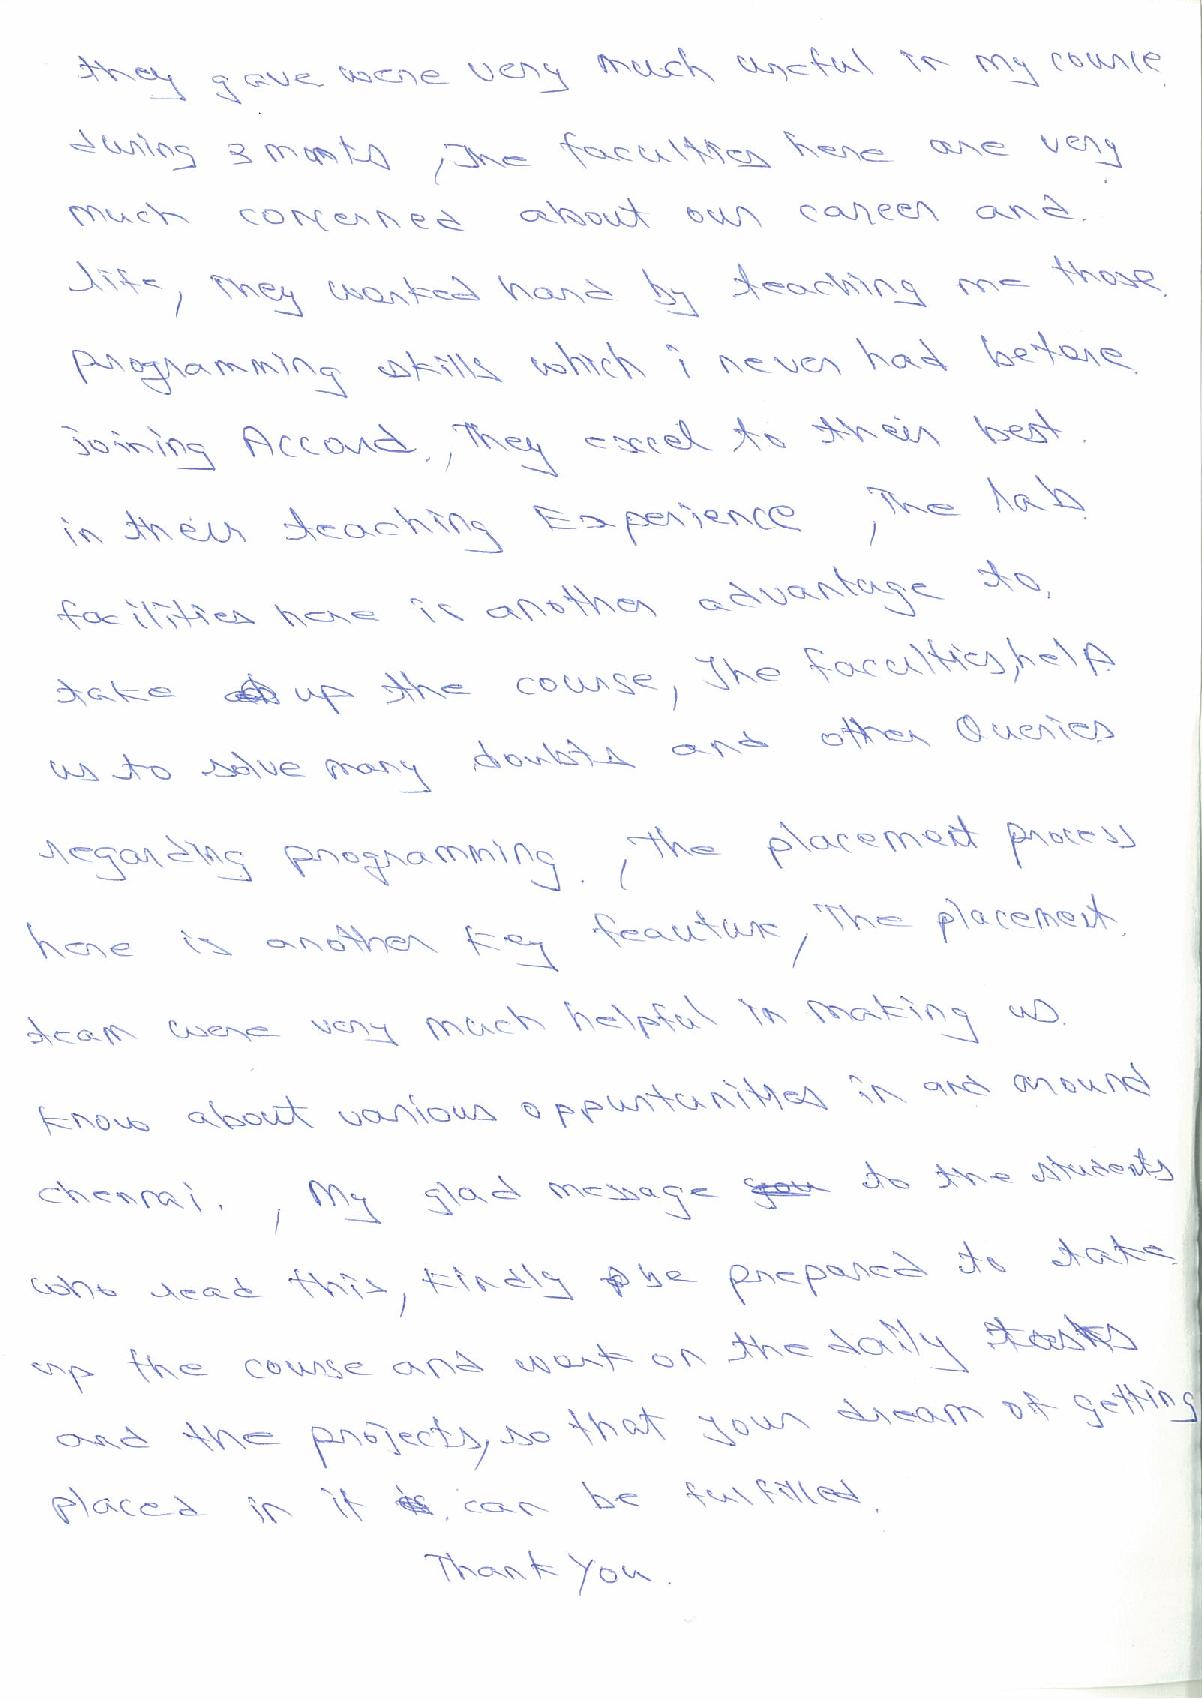 they gave were very much useful in my course
during 3 months , The faculties here are very
much concerned about our career and
life, They worked hard by teaching me those
programming skills which i never had before
joining Accord., They excel to their best
in their teaching Experience , The lab
facilities here is another advantage to
take up the course, The faculties, help
us to solve many doubts and other Queries
regarding programming. , The placement process
here is another key feauture, The placement
team were very much helpful in making us
know about various oppurtunities in and around
chennai. , My glad message to the students
who read this, kindly be prepared to take
up the course and work on the daily tasks
and the projects, so that your dream of getting
placed in it can be fulfilled.
Thank You.